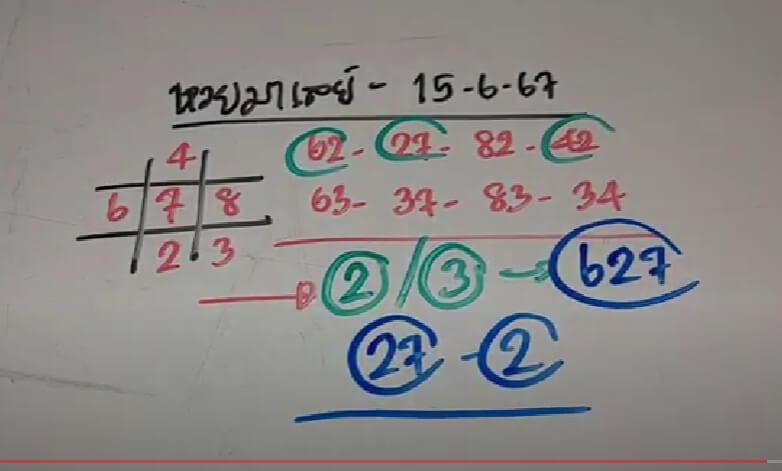 หวยมาเลย์ - 15-6-67
4
62 - 27 - 82 - 42
6 7 8
63 - 37 - 83 - 34
2 3
2 / 3 → 627
27 - 2